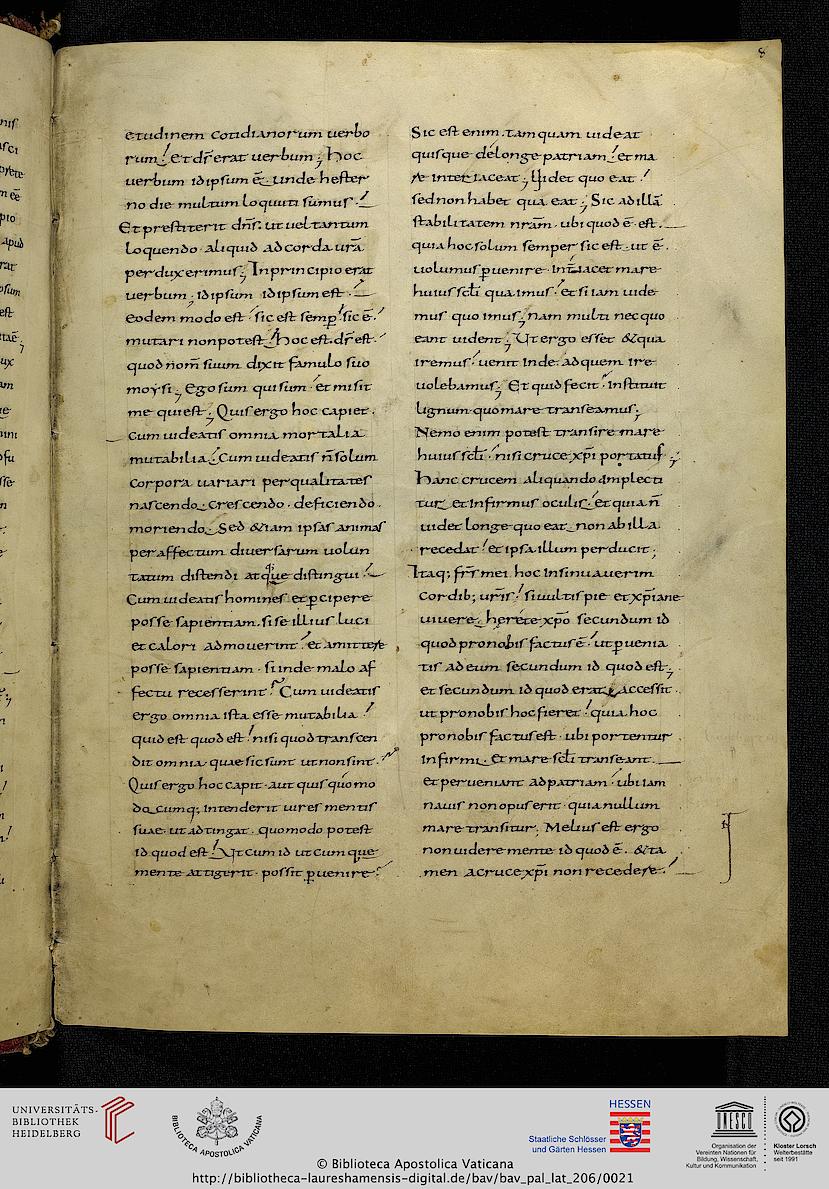 8
etudinem cotidianorum verbo
rum! Et dr̄ erat uerbum; hoc
uerbum idipsum ē. unde hester
no die multum loquuti sumus.
Et prestiterit dn̄s. ut uel tantum
loquendo. aliquid ad corda ur̄a
perduxerimus; In principio erat
uerbum; idipsum idipsum est.
eodem modo est. sic est semp̲. sic ē.
mutari non potest. hoc est. dr̄ est.
quod nom̄ suum dixit famulo suo
moysi; Ego sum qui sum. et misit
me qui est; Quis ergo hoc capiet.
cum uideatis omnia mortalia
mutabilia. Cum uideatis n̄ solum
corpora uariari per qualitates
nascendo. crescendo. deficiendo.
moriendo. Sed &iam ipsas animas
per affectum diuersarum uolun
tatum distendi atque distingui.
Cum uideatis homines et p̲cipere
posse sapientiam. si se illius luci
et calori admouerint. et amittere
posse sapientiam. si inde malo af
fectu recesserint. Cum uideatis
ergo omnia ista esse mutabilia!
quid est quod est! nisi quod transcen
dit omnia. quae sic sunt ut non sint.
Quis ergo hoc capit. aut quis quomo
do cumq; intenderit uires mentis
suae. ut adtingat. quomodo potest
id quod est! Ut cum id utcumque
mente attigerit. possit p̲uenire.
Sic est enim. tamquam uideat
quisque de longe patriam. et ma
re interiaceat; Uidet quo eat!
sed non habet qua eat; Sic ad illā
stabilitatem nr̄am. ubi quod ē. est.
quia hoc solum semper sic est. ut ē.
uolumus p̲uenire. int̄iacet mare
huius sc̄li qua imus. et si iam uide
mus quo imus; nam multi nec quo
eant uident; Ut ergo esset &qua
iremus. uenit inde. ad quem ire
uolebamus; Et quid fecit. Instituit
lignum quo mare transeamus;
Nemo enim potest transire mare
huius sc̄li. nisi cruce xp̄i portatus;
Hanc crucem aliquando amplecti
tur. et infirmus oculis. et qui a n̄
uidet longe quo eat. non ab illa
recedat. et ipsa illum perducit;
Itaq; fr̄s mei. hoc insinuauerim
cordib; ur̄is! si uultis pie et xp̄iane
uiuere. herete xp̄o secundum id
quod pro nobis factus ē. ut p̲uenia
tis ad eum secundum id quod est;
et secundum id quod erat. accessit.
ut pro nobis hoc fieret! quia hoc
pro nobis factus est. ubi portentur
infirmi. et mare sc̄li transeant.
et perueniant ad patriam. ubi iam
nauis non opus erit. quia nullum
mare transitur. Melius est ergo
non uidere mente id quod ē. &ta
men a cruce xp̄i non recedere.
UNIVERSITÄTS-
BIBLIOTHEK
HEIDELBERG
BIBLIOTECA APOSTOLICA VATICANA
HESSEN
Staatliche Schlösser
und Gärten Hessen
UNESCO
Organisation der
Vereinten Nationen für
Bildung, Wissenschaft,
Kultur und Kommunikation
Kloster Lorsch
Welterbestätte
seit 1991
© Biblioteca Apostolica Vaticana
http://bibliotheca-laureshamensis-digital.de/bav/bav_pal_lat_206/0021